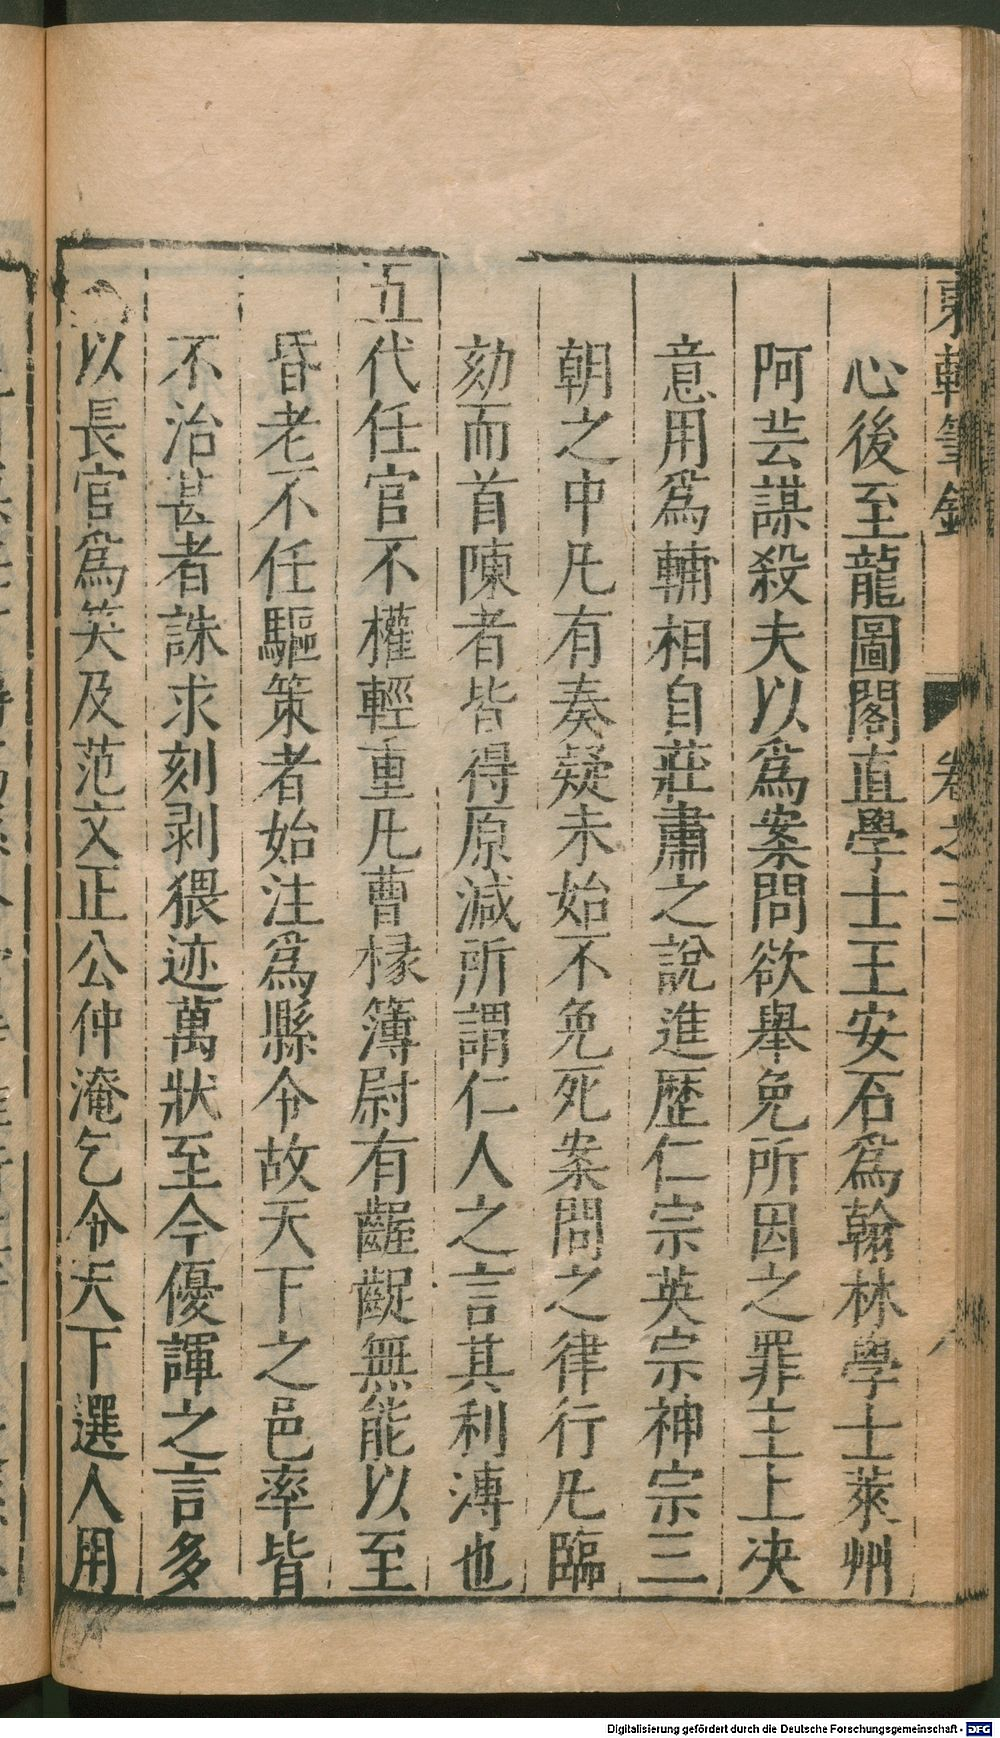 東軒筆錄 卷之三 八
心後至龍圖閣直學士王安石爲翰林學士萊州
阿芸謀殺夫以爲案問欲舉免所因之罪主上决
意用爲輔相自莊肅之說進歷仁宗英宗神宗三
朝之中凡有奏疑未始不免死案問之律行凡臨
劾而首陳者皆得原減所謂仁人之言其利溥也
五代任官不權輕重凡曹掾簿尉有齷齪無能以至
昏老不任驅策者始注爲縣令故天下之邑率皆
不治甚者誅求刻剥猥迹萬狀至今優諢之言多
以長官爲笑及范文正公仲淹乞令天下選人用
Digitalisierung gefördert durch die Deutsche Forschungsgemeinschaft - DFG